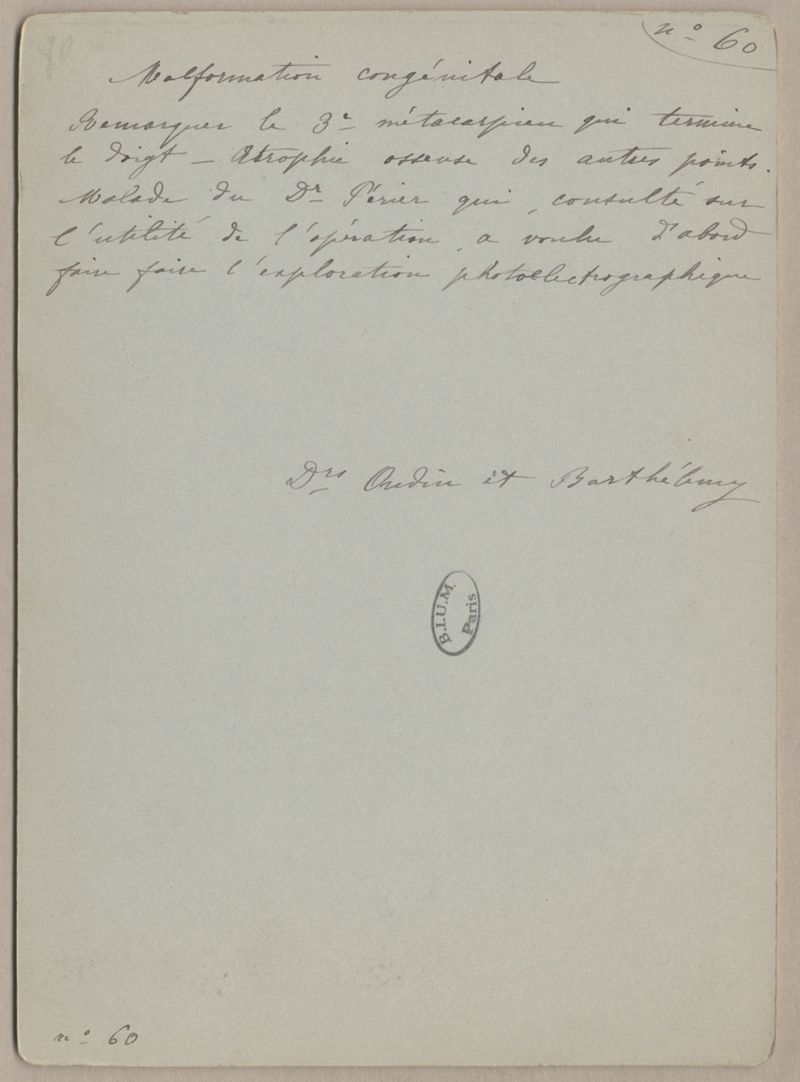 n° 60
Malformation congénitale
Remarquer le 3e métacarpien qui termine
le doigt — Atrophie osseuse des autres points.
Malade du Dr Périer qui, consulté sur
l'utilité de l'opération, a voulu d'abord
faire faire l'exploration photoelectrographique
Drs Oudin et Barthélemy
B.I.U.M.
Paris
n° 60